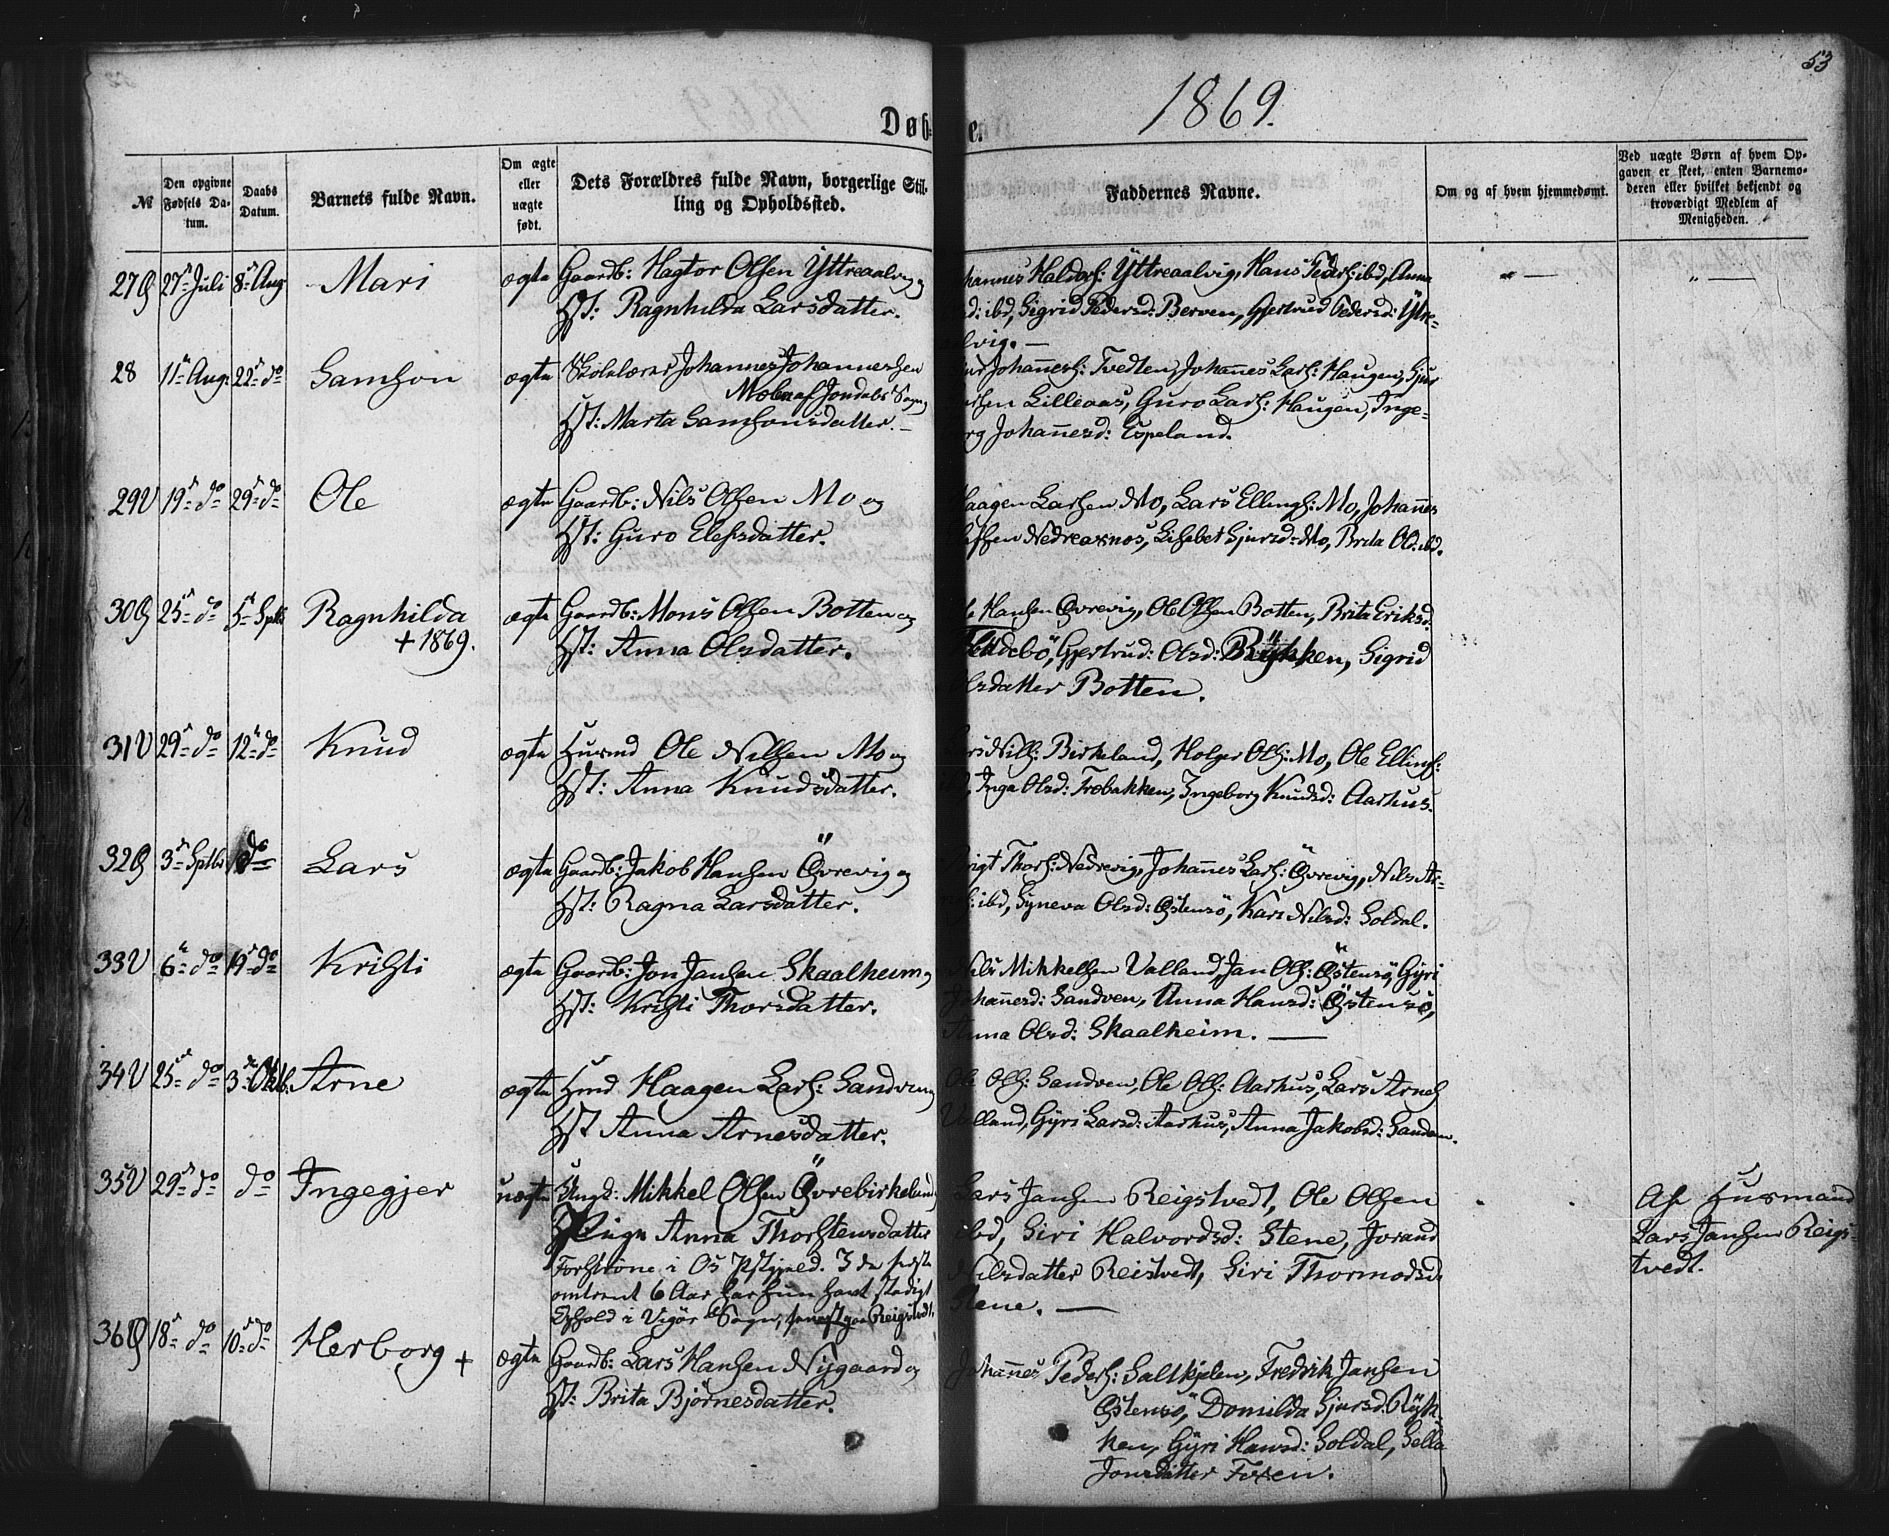 53
1869.
Døbte.
№
Den opgivne Fødsels Datum.
Daabs Datum.
Barnets fulde Navn.
Om ægte eller uægte født.
Dets Forældres fulde Navn, borgerlige Stilling og Opholdssted.
Faddernes Navne.
Om og af hvem hjemmedømt.
Ved uægte Børn af hvem Opgaven er skeet, enten Barnemoderen eller hvilket bekjendt og troværdigt Medlem af Menigheden.
27Ø 27de Juli 8de Aug Mari ægte Gaardb: Hagtor Olsen Yttreaalvig og
Hst: Ragnhilda Larsdatter.
hannes Haldors: Yttreaalvig, Hans Peders: ibd, Anna
d: ibd, Sigrid Pedersd: Berven, Gjertrud Pedersd: Ytre-
lvig. —
28 11te Aug: 22de do Samson ægte Skolelærer Johannes Johannessen
Moe af Jondals Sogn,
Hst: Marta Samsonsdatter. —
Johannes: Tvedten, Johannes Lars: Haugen, Sjur
sen Lilleaas, Guro Lars: Haugen, Inge-
rg Johannesd: Espeland.
29V 19de do 29de do Ole ægte Gaardb: Nils Olsen Mo og
Hst: Guro Elefsdatter.
Haagen Larsen Mo, Lars Ellings: Mo, Johannes
Nedreaxnos, Lisabet Sjursd: Mo, Brita Ol: ibd.
30Ø 25de do 5te Sptb Ragnhilda ægte Gaardb: Mons Olsen Botten og
+ 1869.
Hst: Anna Olsdatter.
Hansen Øvrevig, Ole Olsen Botten, Brita Eriksd:
Gjertrud: Olsd: Rykken, Sigrid
Olsdatter Botten.
31V 29de do 12te do Knud ægte Husmd Ole Nilsen Mo og
Hst: Anna Knudsdatter.
Nils: Birkeland, Holger Ols: Mo, Ole Ellings:
Inga Olsd: Træbakken, Ingeborg Knudsd: Aarhus.
32Ø 3de Sptbr do Lars ægte Gaardb: Jakob Hansen Øvrevig og
Hst: Ragna Larsdatter.
Thors: Nedrevig, Johannes Lars: Øvrevig, Nils Ar-
: ibd, Syneva Olsd: Østensø, Kari Nilsd: Soldal.
33V 6te do 19de do Kristi ægte Gaardb: Jon Jansen Skaalheim,
Hst: Kristi Thorsdatter.
Nils Mikkelsen Valland, Jan Ols: Østensø, Gyri
Johannesd: Sandven, Anna Hansd: Østensø,
Anna Olsd: Skaalheim. —
34V 25de do 3de Oktb. Arne ægte Hmd Haagen Lars: Sandven,
Hst Anna Arnesdatter.
Ole Ols: Sandven, Ole Ols: Aarhus, Lars Arnes
Valland, Gyri Larsd: Aarhus, Anna Jakobsd: Sandven.
35V 29de do do Ingegjer uægte Ungk: Mikkel Olsen Øvrebirkeland,
Pige Anna Thorstensdatter
Forstrøne i Os Pstgjæld. I de sidste
omtrent 6 Aar har hun havt stadigt
Ophold i Vigør Sogn, senest paa Reigstvedt.
Lars Jansen Reigstvedt, Ole Olsen
ibd, Siri Halvordsd: Stene, Jorand
Nilsdatter Reistvedt, Siri Thormodsd:
Stene. —
Af Husmand
Lars Jansen Reigs-
tvedt.
36Ø 18de do 10de do Herborg + ægte Gaardb: Lars Hansen Nygaard og
Hst: Brita Bjørnesdatter.
Johannes Peders: Saltkjelen, Fredrik Jansen
Østensø, Domilda Sjursd: Ryk-
ken, Gyri Hansd: Soldal, Sella
Jonsdatter Foxen.